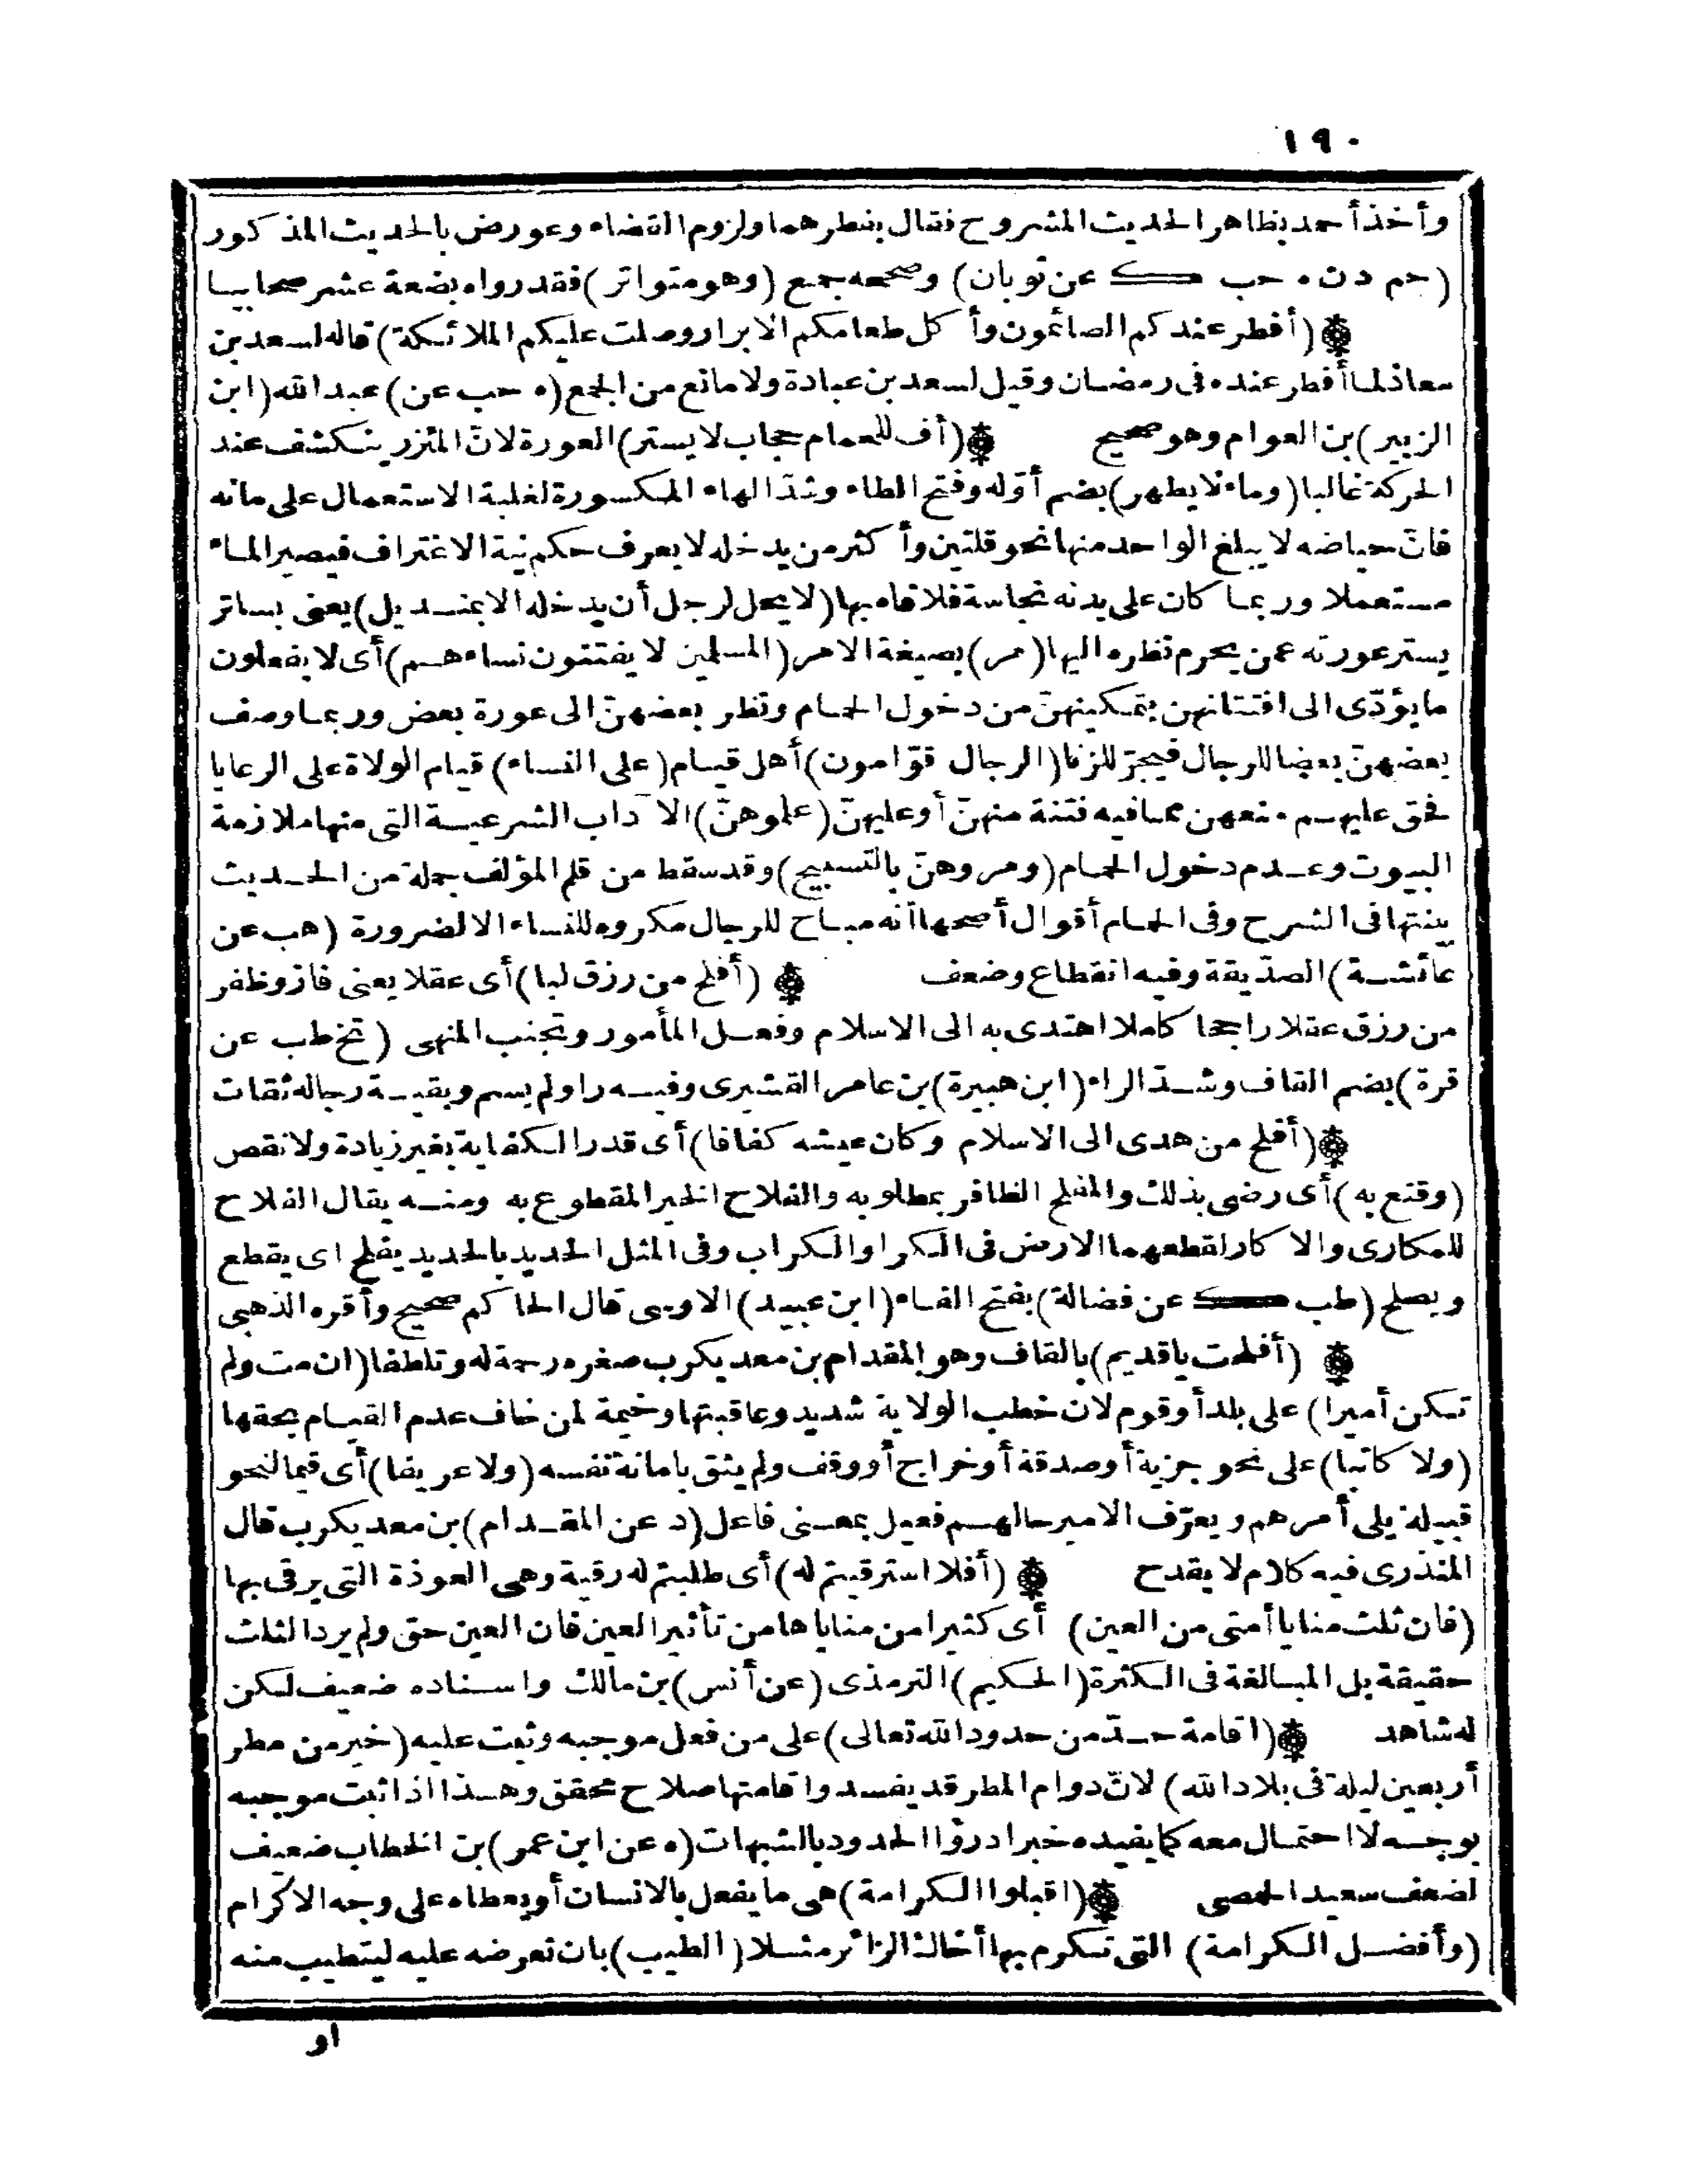 ١٩٠
وأخذ أحمد بظاهر الحديث المشروح فقال بفطرهما ولزوم القضاء وعورض بالحديث المذكور
(حم د ن ه حب ك عن ثوبان) وصححه جمع (وهو متواتر) فقد رواه بضعة عشر صحابيا
(أفطر عندكم الصائمون وأكل طعامكم الابرار وصلت عليكم الملائكة) قاله لسعد بن
معاذ لما أفطر عنده فى رمضان وقيل لسعد بن عبادة ولا مانع من الجمع (ه حب عن) عبد الله (ابن
الزبير) بن العوام وهو صحيح (أف للحمام حجاب لا يستر) العورة لانّ المئزر ينكشف عند
الحركة غالبا (وماء لا يطهر) بضم أوّله وفتح الطاء وشدّ الهاء المكسورة لغلبة الاستعمال على مائه
فانّ حياضه لا يبلغ الواحد منها نحو قلتين وأكثر من يدخله لا يعرف حكم نية الاغتراف فيصير الماء
مستعملا وربما كان على بدنه نجاسة فلاقاه بها (لا يحل لرجل أن يدخله الا بمنديل) يعنى بساتر
يستر عورته عمن يحرم نظره اليها (مر) بصيغة الامر (المسلمين لا يفتنون نساءهم) أى لا يفعلون
ما يؤدّى الى افتتانهن بتمكينهنّ من دخول الحمام ونظر بعضهنّ الى عورة بعض وربما وصف
بعضهنّ بعضا للرجال فيجرّ للزنا (الرجال قوّامون) أهل قيام (على النساء) قيام الولاة على الرعايا
فحق عليهم منعهن مما فيه فتنة منهنّ أو عليهنّ (علموهنّ) الآداب الشرعية التى منها ملازمة
البيوت وعدم دخول الحمام (ومروهنّ بالتسبيح) وقد سقط من قلم المؤلف جملة من الحديث
بينتها فى الشرح وفى الحمام أقوال أصحها أنه مباح للرجال مكروه للنساء الا لضرورة (هب عن
عائشة) الصدّيقة وفيه انقطاع وضعف (أفلح من رزق لبا) أى عقلا يعنى فاز وظفر
من رزق عقلا راجحا كاملا اهتدى به الى الاسلام وفعل المأمور وتجنب المنهى (تخ طب عن
قرة) بضم القاف وشدّ الراء (ابن هبيرة) بن عامر القشيرى وفيه راو لم يسم وبقية رجاله ثقات
(أفلح من هدى الى الاسلام وكان عيشه كفافا) أى قدر الكفاية بغير زيادة ولا نقص
(وقنع به) أى رضى بذلك والمفلح الظافر بمطلوبه والفلاح الخير المقطوع به ومنه يقال الفلاح
للمكارى والاكار لقطعهما الارض فى الكرا والكراب وفى المثل الحديد بالحديد يفلح اى يقطع
ويصلح (طب ك عن فضالة) بفتح الفاء (ابن عبيد) الاويسى قال الحاكم صحيح وأقره الذهبى
(أفلحت ياقديم) بالقاف وهو المقدام بن معد يكرب صغره رحمة له وتلطفا (ان مت ولم
تكن أميرا) على بلد أو قوم لان خطب الولاية شديد وعاقبتها وخيمة لمن خاف عدم القيام بحقها
(ولا كاتبا) على نحو جزية أو صدقة أو خراج أو وقف ولم يثق بامانة نفسه (ولا عريفا) أى قيما لنحو
قبيلة يلى أمرهم ويعرّف الامير حالهم فعيل بمعنى فاعل (د عن المقدام) بن معد يكرب قال
المنذرى فيه كلام لا يقدح (أفلا استرقيتم له) أى طلبتم له رقية وهى العوذة التى يرقى بها
(فان ثلث منايا أمتى من العين) أى كثيرا من مناياها من تأثير العين فان العين حق ولم يرد الثلث
حقيقة بل المبالغة فى الكثرة (الحكيم) الترمذى (عن أنس) بن مالك واسناده ضعيف لكن
له شاهد (اقامة حدّ من حدود الله تعالى) على من فعل موجبه وثبت عليه (خير من مطر
أربعين ليلة فى بلاد الله) لانّ دوام المطر قد يفسد واقامتها صلاح محقق وهذا اذا ثبت موجبه
بوجه لا احتمال معه كما يفيده خبر ادرؤا الحدود بالشبهات (ه عن ابن عمر) بن الخطاب ضعيف
لضعف سعيد الحمصى (اقبلوا الكرامة) هى ما يفعل بالانسان أو يعطاه على وجه الاكرام
(وأفضل الكرامة) التى تكرم بها أخاك الزائر مثلا (الطيب) بان تعرضه عليه ليتطيب منه
او